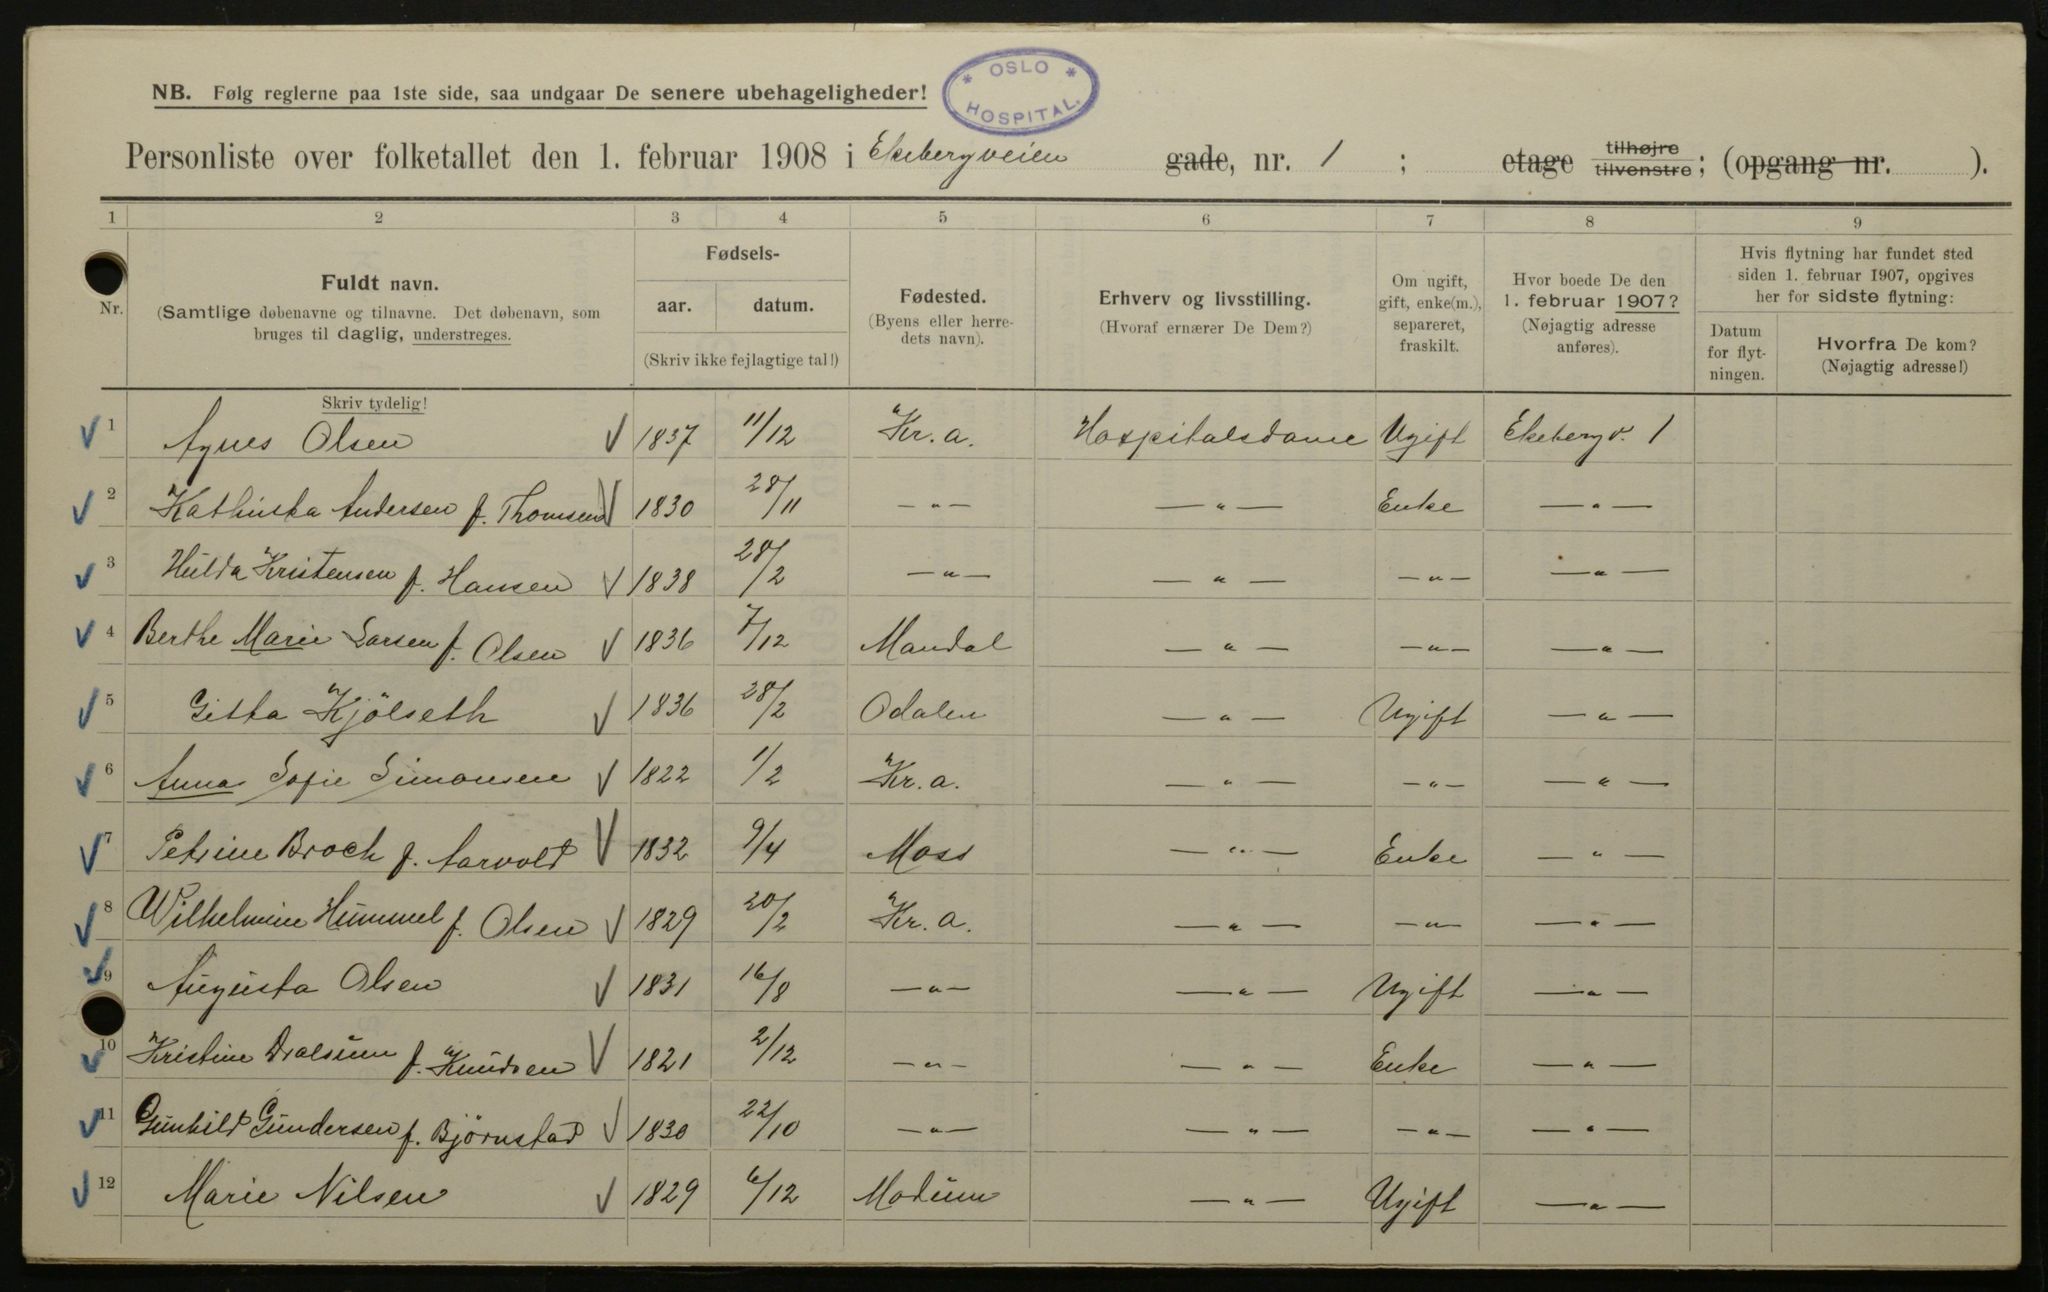 OSLO HOSPITAL.
NB. Følg reglerne paa 1ste side, saa undgaar De senere ubehageligheder!
Personliste over folketallet den 1. februar 1908 i Ekebergveien gade, nr. 1 ; etage tilhøjre tilvenstre ; (opgang nr. ).
1 2 3 4 5 6 7 8 9
Nr.
Fuldt navn.
(Samtlige døbenavne og tilnavne. Det døbenavn, som
bruges til daglig, understreges.
Skriv tydelig!
Fødsels-
aar. datum.
(Skriv ikke fejlagtige tal!)
Fødested.
(Byens eller herre-
dets navn).
Erhverv og livsstilling.
(Hvoraf ernærer De Dem?)
Om ugift,
gift, enke(m.),
separeret,
fraskilt.
Hvor boede De den
1. februar 1907?
(Nøjagtig adresse
anføres).
Hvis flytning har fundet sted
siden 1. februar 1907, opgives
her for sidste flytning:
Datum
for flyt-
ningen.
Hvorfra De kom?
(Nøjagtig adresse!)
1 Agnes Olsen 1837 11/12 Kr.a. Hospitalsdame Ugift Ekeberg v. 1
2 Kathinka Andersen f. Thomsen 1830 28/11 —"— —"— Enke —"—
3 Hulda Kristensen f. Hansen 1838 28/2 —"— —"— —"— —"—
4 Berthe Marie Larsen f. Olsen 1836 7/12 Mandal —"— —"— —"—
5 Gitta Kjölseth 1836 28/2 Odalen —"— Ugift —"—
6 Anna Sofie Simonsen 1822 1/2 Kr.a. —"— —"— —"—
7 Petrine Broch f. Aarvold 1832 9/4 Moss —"— Enke —"—
8 Wilhelmine Hummel f. Olsen 1829 20/2 Kr.a. —"— —"— —"—
9 Augusta Olsen 1831 16/8 —"— —"— Ugift —"—
10 Kristine f. Knudsen 1821 2/12 —"— —"— Enke —"—
11 Gunhild Gundersen f. Björnstad 1830 22/10 —"— —"— —"— —"—
12 Marie Nilsen 1829 6/12 Modum —"— Ugift —"—